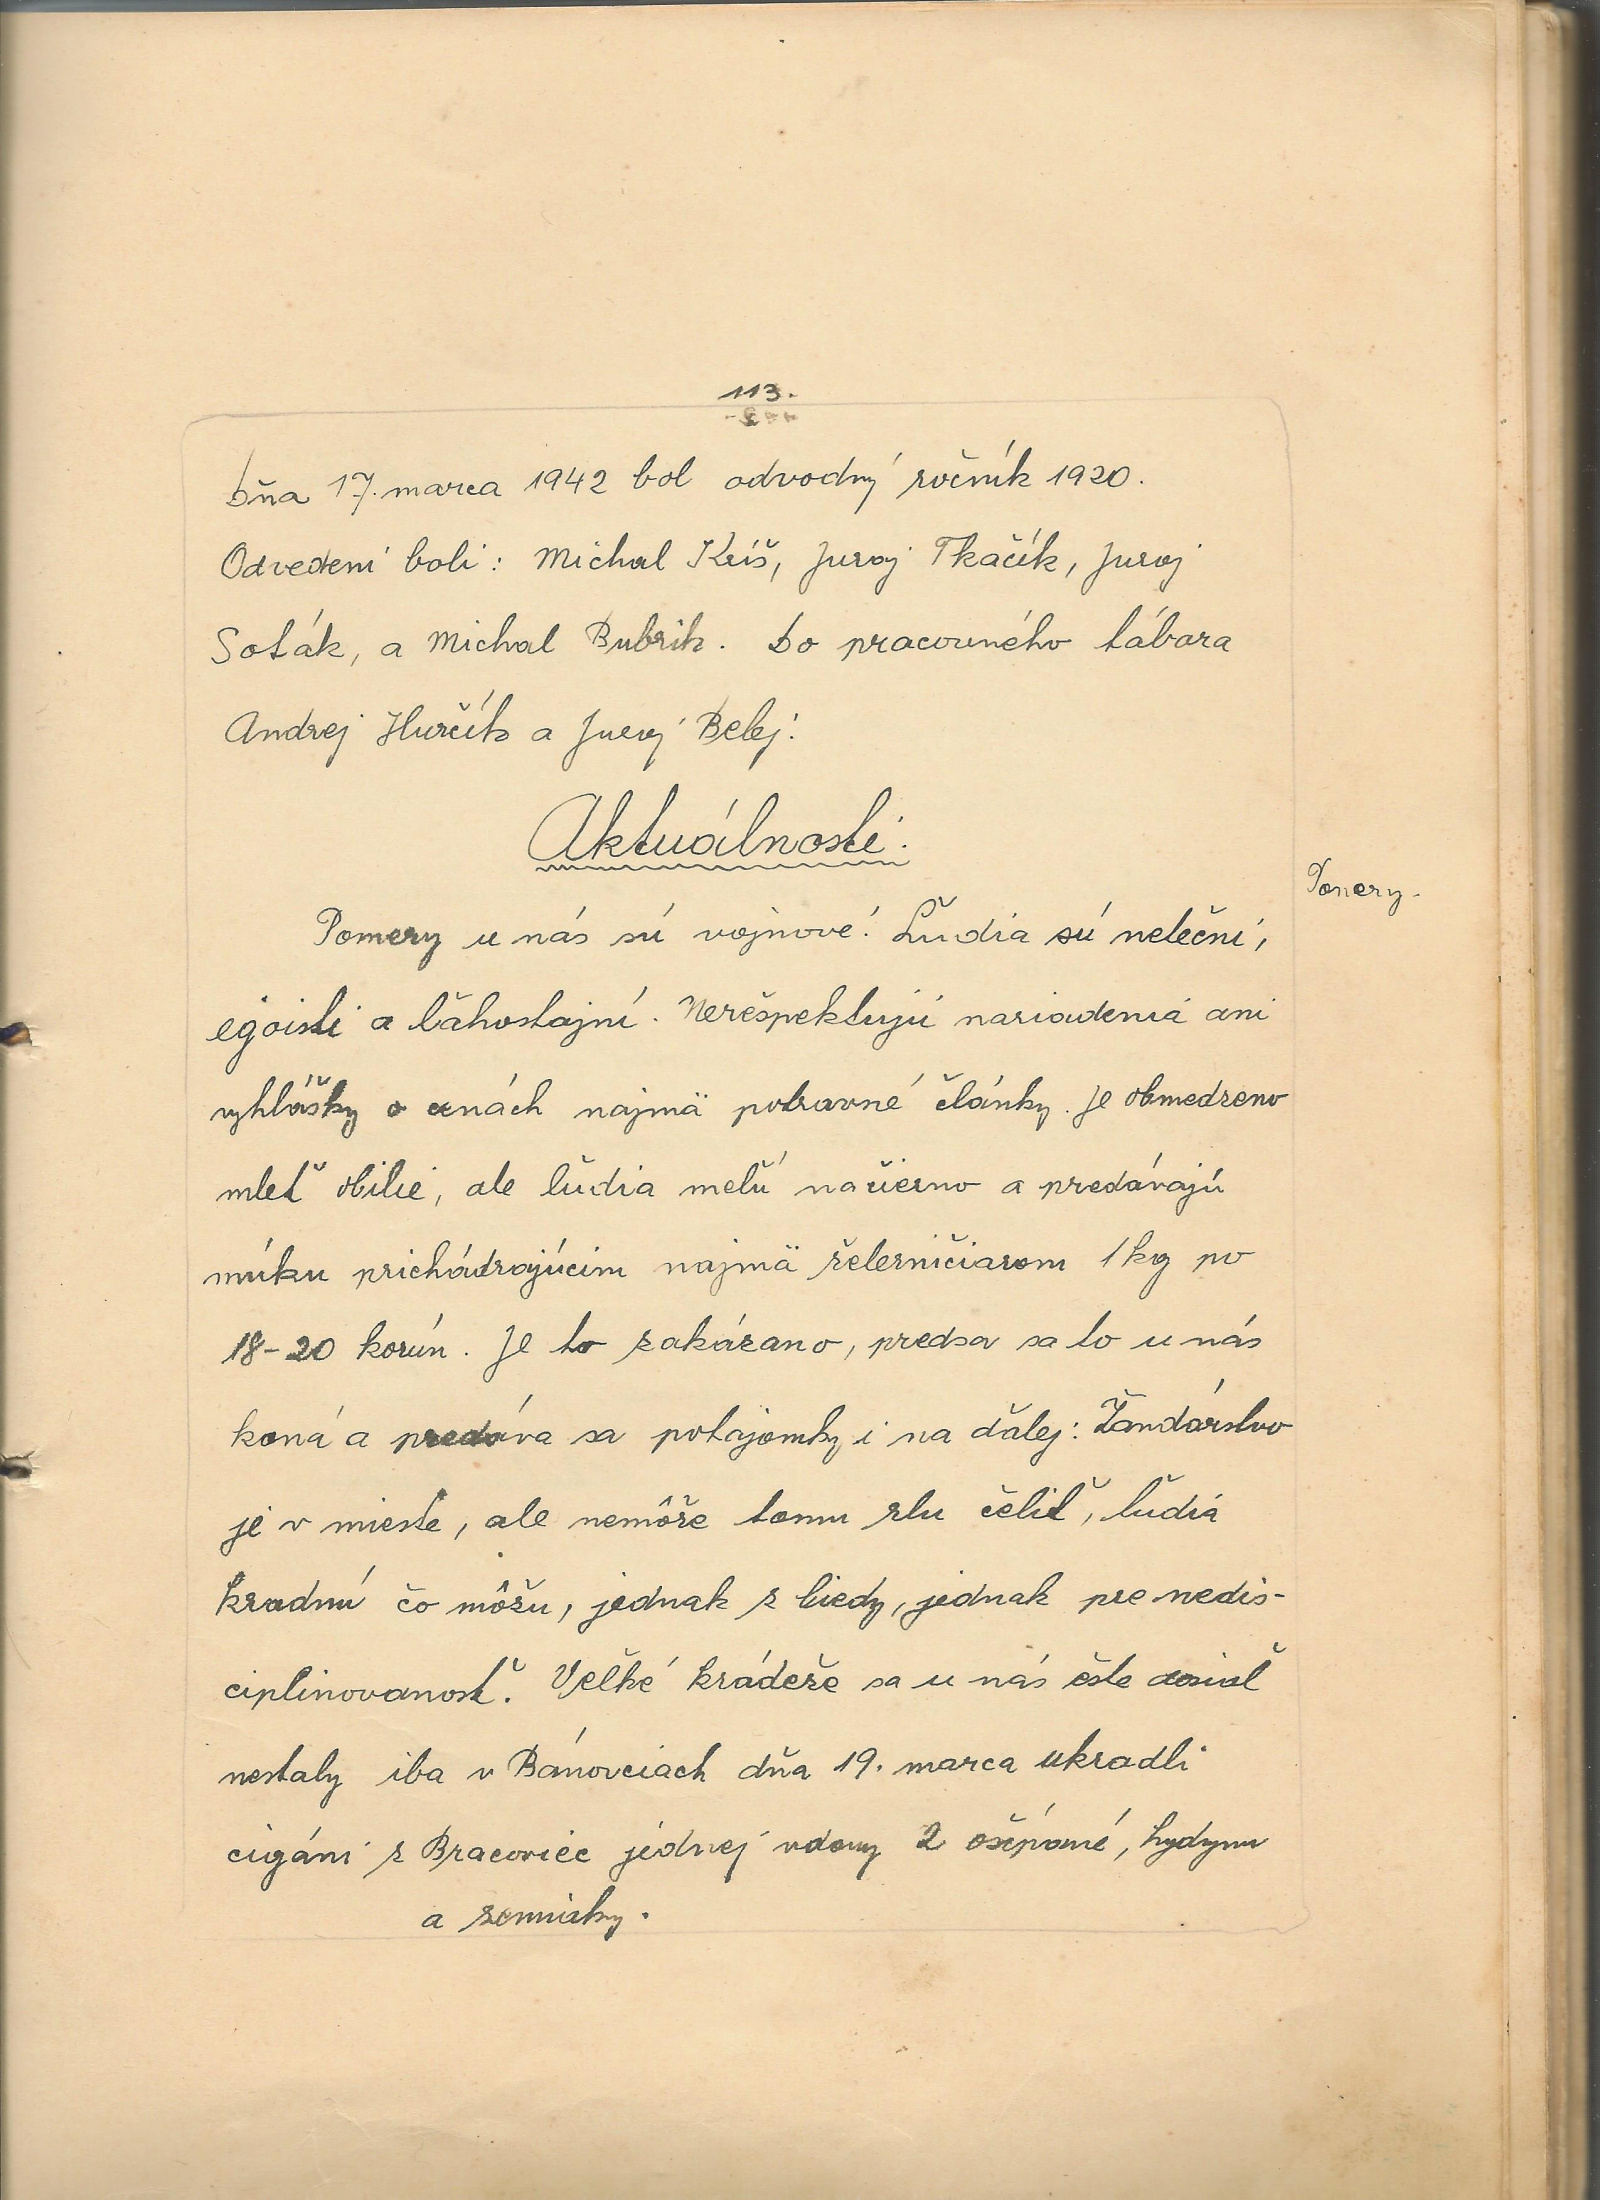 113.
Dňa 17. marca 1942 bol odvodný ročník 1920.
Odvedení boli: Michal Kríš, Juraj Tkáčik, Juraj
Soták, a Michal Bubrik. Do pracovného tábora
Andrej Hurčík a Juraj Belej.
Aktuálnosti.
Pomery.
Pomery u nás sú vojnové. Ľudia sú neteční,
egoisti a ľahostajní. Nerešpektujú nariadenia ani
vyhlášky o cenách najmä potravné články. Je obmedzeno
mleť obilie, ale ľudia meľú načierno a predávajú
múku prichádzajúcim najmä železničiarom 1 kg po
18-20 korún. Je to zakázano, predsa sa to u nás
koná a predáva sa potajomky i na ďalej. Žandárstvo
je v mieste, ale nemôže tomu zlu čeliť, ľudia
kradnú čo môžu, jednak z biedy, jednak pre nedis-
ciplinovanosť. Veľké krádeže sa u nás ešte dosiaľ
nestaly iba v Bánovciach dňa 19. marca ukradli
cigáni z Bracoviec jednej vdovy 2 ošípané, hydynu
a zemiaky.